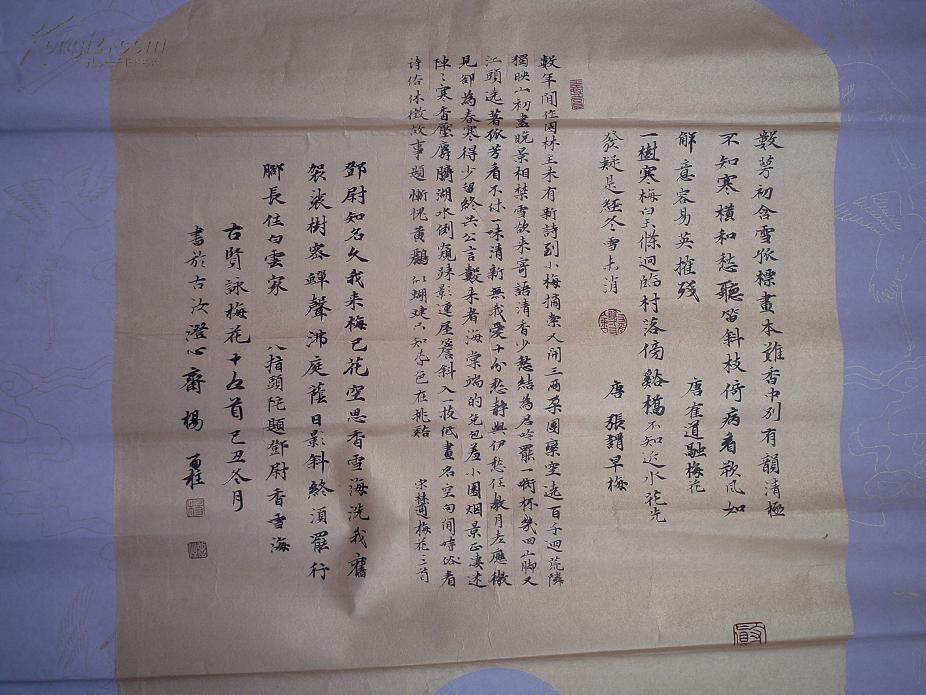 數萼初含雪孤標畫本難香中别有韻清極
不知寒横和愁聽笛斜枝倚病看欬風如
解意容易英摧殘 唐崔道融梅花
一樹寒梅白玉條迥臨村落傍谿橋不知近水花先
發疑是經冬雪未消 唐 張謂早梅
數年閒作園林主未有新詩到小梅摘索又開三兩朵團欒空遶百千迴荒隣
獨映山初盡晚景相禁雪欲來寄語清香少愁結為君吟罷一銜杯幾回山脚又
江頭遶著孤芳看不休一味清新無我愛十分愁静與伊愁任教月老應微
見却為春寒得少留終共公言數來者海棠端的免包羞小園烟景正凄迷
陣々寒香壓麝臍湖水倒窺疎影運屋簷斜入一枝低畫名空向閒時俗看
诗俗休徵故事題慚愧黄鸝 蝴蝶只知春色在桃谿 宋林逋梅花三首
鄧尉知名久我来梅已花空思香雪海洗我舊
袈裟樹密蟬聲沸庭蔭日影斜終須罷行
脚長住白雲家 八指頭陀題鄧尉香雪海
古賢詠梅花十六首己丑冬月
書於古汝澄心齋 楊